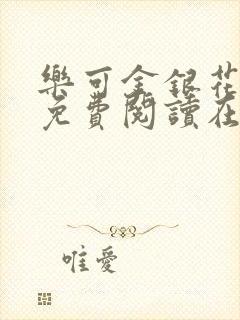 樂可金銀花
免費閱讀在
唯愛